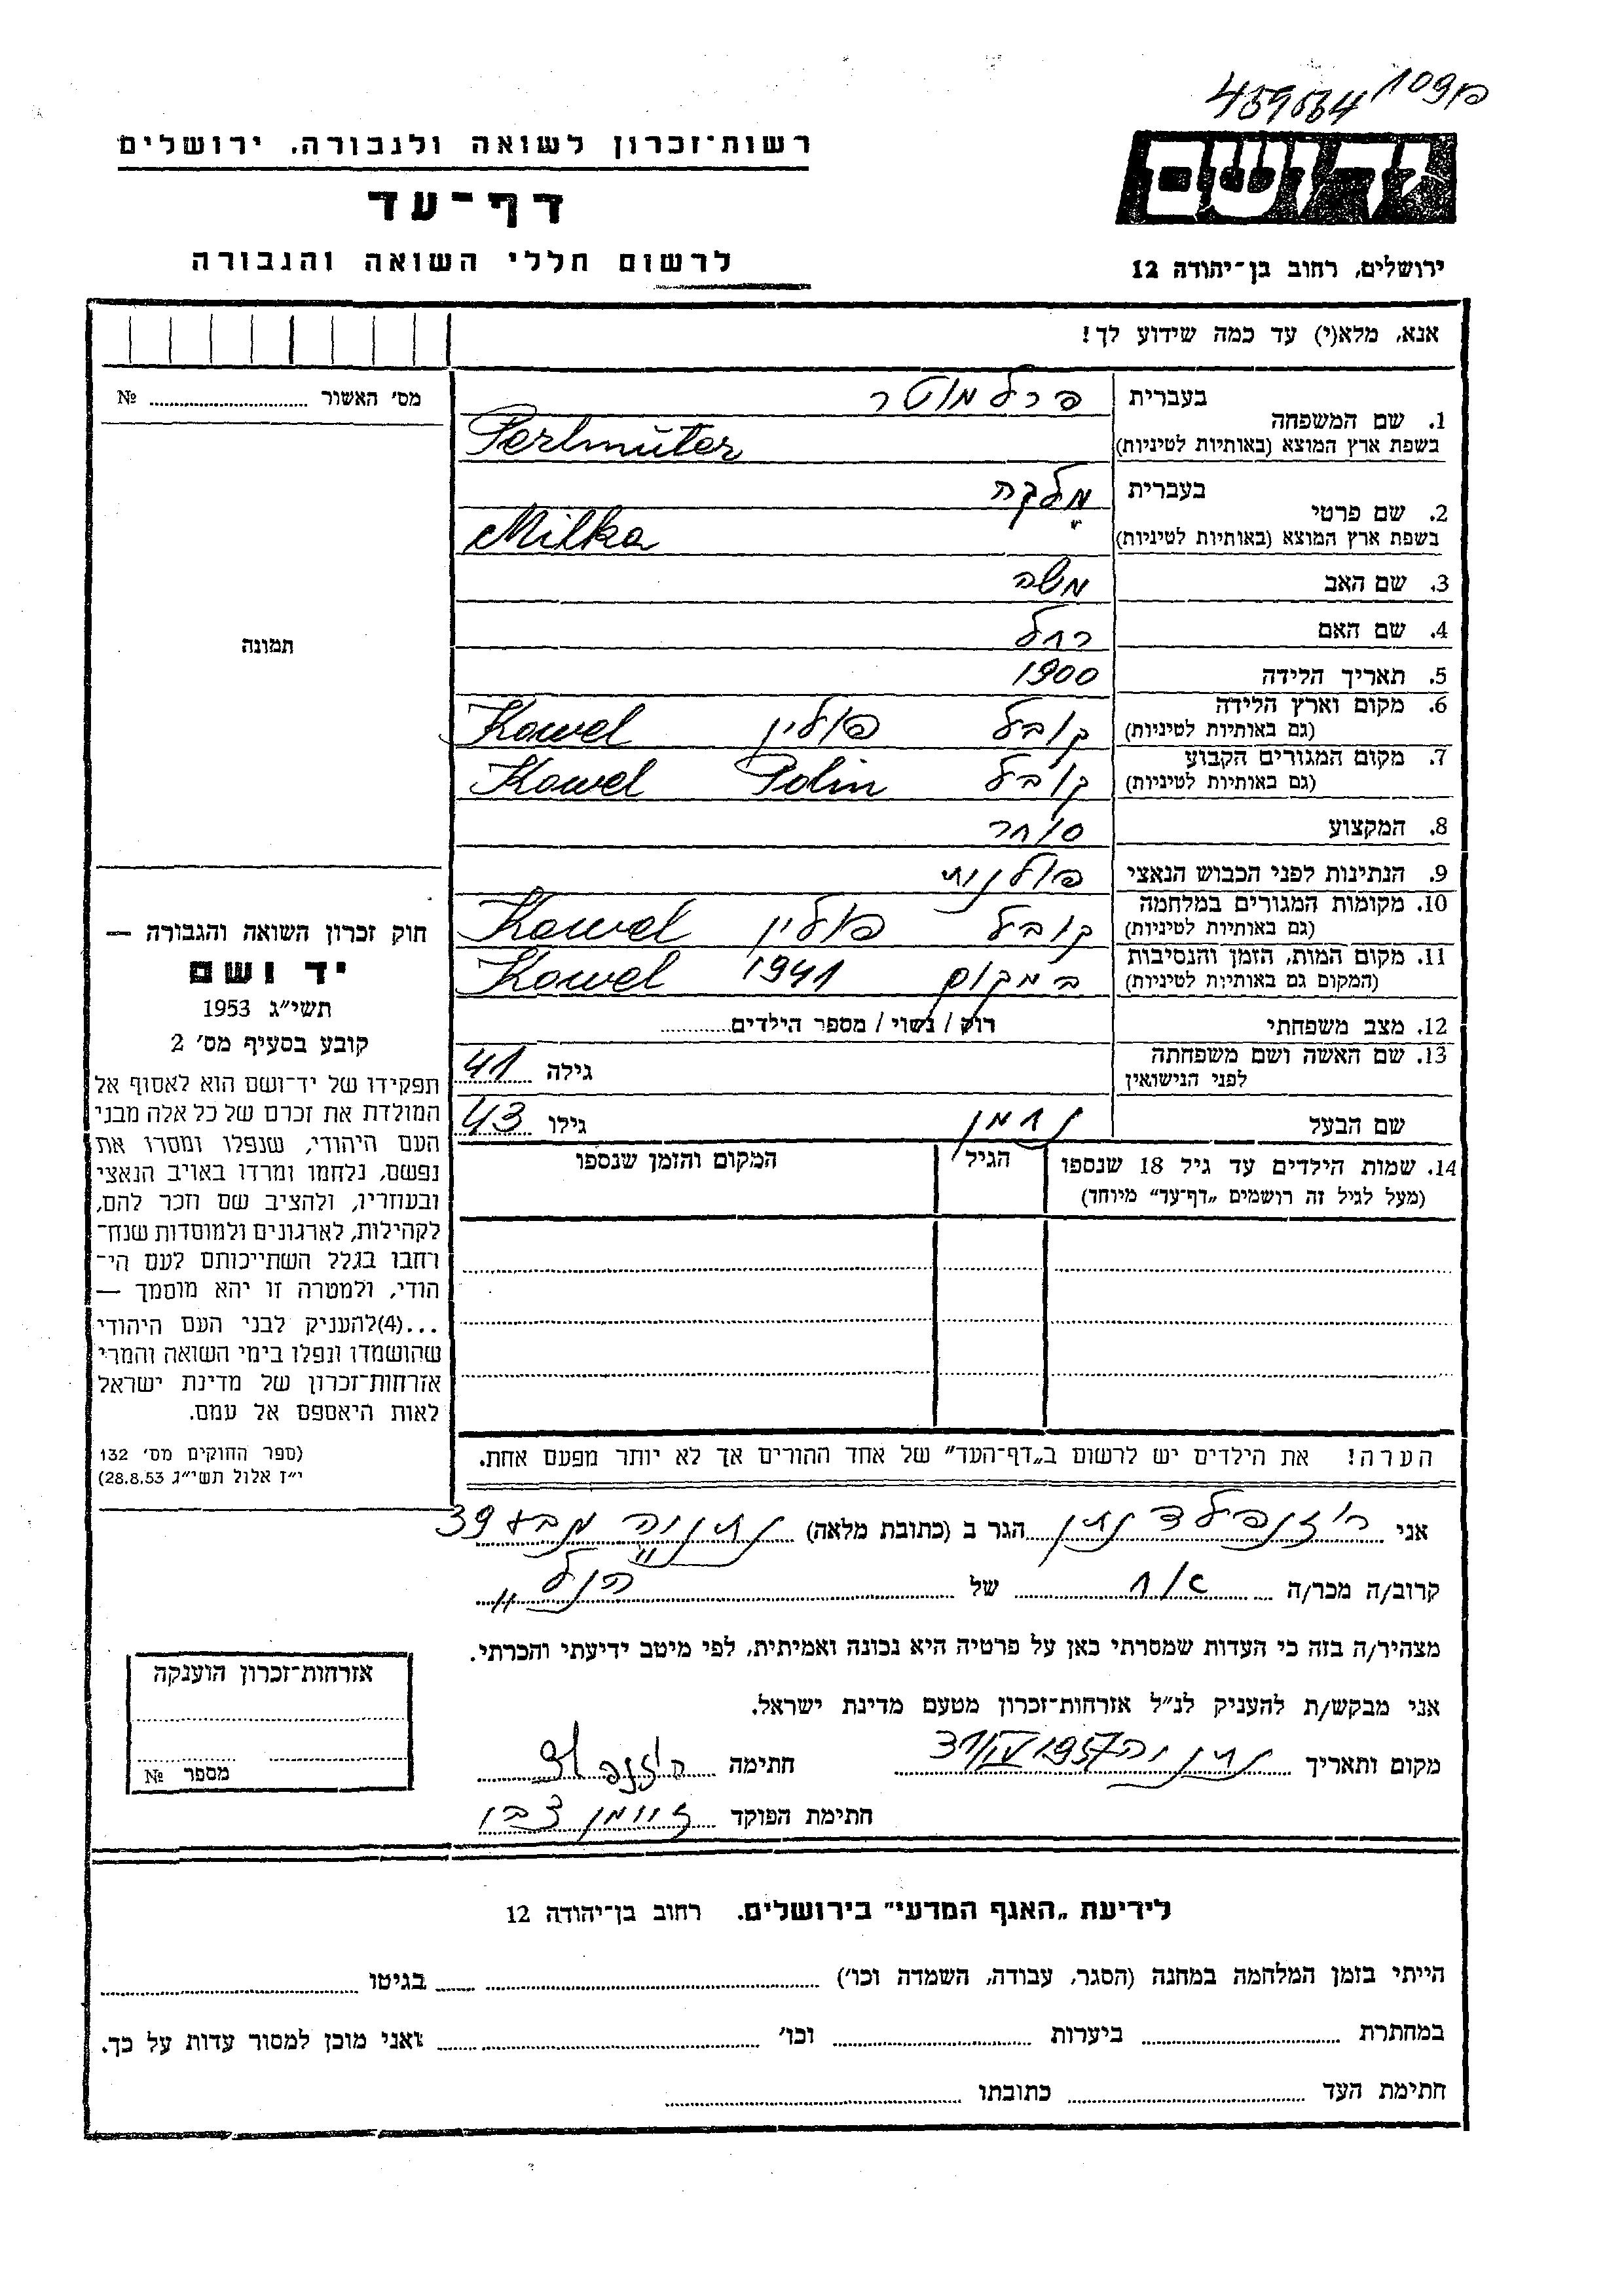 459634 109פ
יד ושם
רשות־זכרון לשואה ולגבורה, ירושלים
דף־עד
לרשום חללי השואה והגבורה
ירושלים, רחוב בן־יהודה 12
אנא, מלא(י) עד כמה שידוע לך!
מס׳ האשור ........ №
תמונה
בעברית פרלמוטר
1. שם המשפחה
בשפת ארץ המוצא (באותיות לטיניות) Perlmüter
בעברית מילכה
2. שם פרטי
בשפת ארץ המוצא (באותיות לטיניות) Milka
3. שם האב משה
4. שם האם רחל
5. תאריך הלידה 1900
6. מקום וארץ הלידה
(גם באותיות לטיניות) קובל פולין Kowel
7. מקום המגורים הקבוע
(גם באותיות לטיניות) קובל Polin Kowel
8. המקצוע סוחר
9. הנתינות לפני הכבוש הנאצי פולנית
10. מקומות המגורים במלחמה
(גם באותיות לטיניות) קובל פולין Kowel
11. מקום המות, הזמן והנסיבות
(המקום גם באותיות לטיניות) במקום 1941 Kowel
12. מצב משפחתי רוק / נשוי / מספר הילדים........
13. שם האשה ושם משפחתה
לפני הנישואין גילה 41
שם הבעל נחמן גילו 43
14. שמות הילדים עד גיל 18 שנספו
(מעל לגיל זה רושמים „דף־עד״ מיוחד)
הגיל
המקום והזמן שנספו
הערה! את הילדים יש לרשום ב„דף־העד״ של אחד ההורים אך לא יותר מפעם אחת.
חוק זכרון השואה והגבורה —
יד ושם
תשי״ג 1953
קובע בסעיף מס׳ 2
תפקידו של יד־ושם הוא לאסוף אל
המולדת את זכרם של כל אלה מבני
העם היהודי, שנפלו ומסרו את
נפשם, נלחמו ומרדו באויב הנאצי
ובעוזריו, ולהציב שם וזכר להם,
לקהילות, לארגונים ולמוסדות שנח־
רחבו בגלל השתייכותם לעם הי־
הודי, ולמטרה זו יהא מוסמך —
...(4)להעניק לבני העם היהודי
שהושמדו ונפלו בימי השואה והמרי
אזרחות־זכרון של מדינת ישראל
לאות היאספם אל עמם.
(ספר החוקים מס׳ 132
י״ז אלול תשי״ג 28.8.53)
אני רוזנפילד נתן הגר ב (כתובת מלאה) נתניה 39
קרוב/ה מכר/ה אח של הנ״ל
מצהיר/ה בזה כי העדות שמסרתי כאן על פרטיה היא נכונה ואמיתית, לפי מיטב ידיעתי והכרתי.
אני מבקש/ת להעניק לנ״ל אזרחות־זכרון מטעם מדינת ישראל.
מקום ותאריך נתניה 31/IV 1957 חתימה
חתימת הפוקד
אזרחות־זכרון הוענקה
מספר №
לידיעת „האגף המדעי״ בירושלים. רחוב בן־יהודה 12
הייתי בזמן המלחמה במחנה (הסגר, עבודה, השמדה וכו׳) ........ בגיטו ........
במחתרת ........ ביערות ........ וכו׳ ........ ואני מוכן למסור עדות על כך.
חתימת העד ........ כתובתו ........